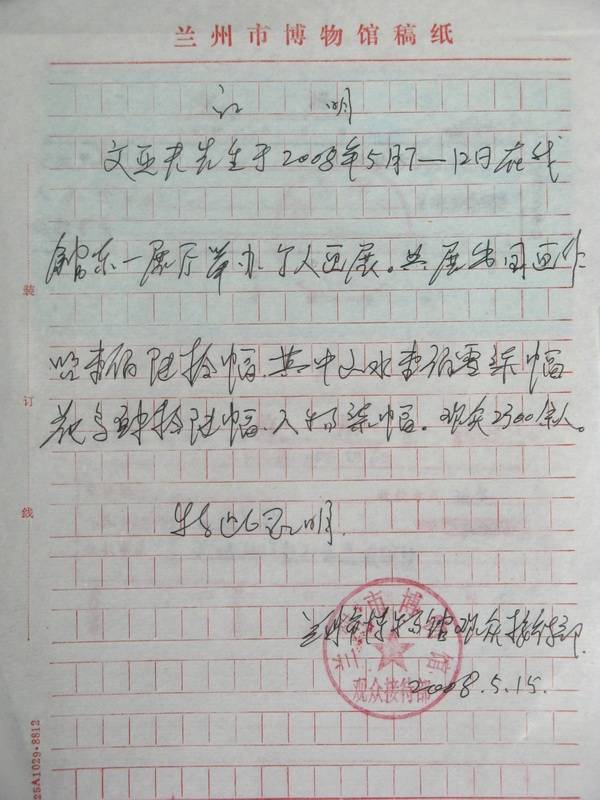 兰州市博物馆稿纸
证 明
文亚夫先生于2008年5月7—12日在我
馆东一展厅举办个人画展。共展出国画作
品壹佰陆拾幅.其中山水壹佰零柒幅
花鸟肆拾陆幅.人物柒幅.观众2300余人。
特此证明.
兰州市博物馆观众接待部.
2008.5.15.
兰州市博物馆
观众接待部
装
订
线
25A1029·8812